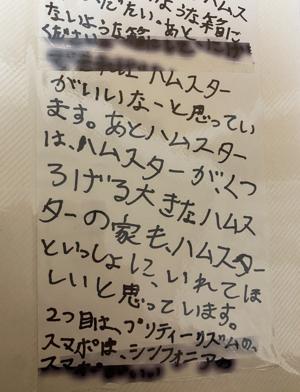 ないような箱に
ハムスター
がいいなーと思ってい
ます。あとハムスター
は、ハムスターが、くつ
ろげる大きなハムス
ターの家も、ハムスター
といっしょに、いれてほ
しいと思っています。
2つ目は、プリティーリズムの、
スマポは、シンフォニアの
スマポ